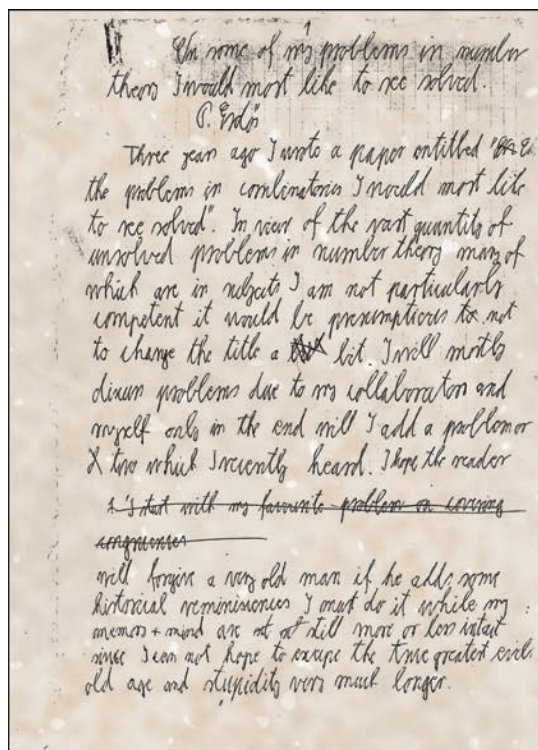 1
On some of my problems in number
theory I would most like to see solved.
P. Erdős
Three years ago I wrote a paper entitled "
the problems in combinatorics I would most like
to see solved". In view of the vast quantity of
unsolved problems in number theory many of
which are in subjects I am not particularly
competent it would be presumptious to not
to change the title a bit. I will mostly
discuss problems due to my collaborators and
myself only in the end will I add a problem or
two which I recently heard. I hope the reader
1. I start with my favourite problem on covering
congruences
will forgive a very old man if he adds some
historical reminiscences I must do it while my
memory + mind are still more or less intact
since I can not hope to escape the true greatest evils
old age and stupidity very much longer.